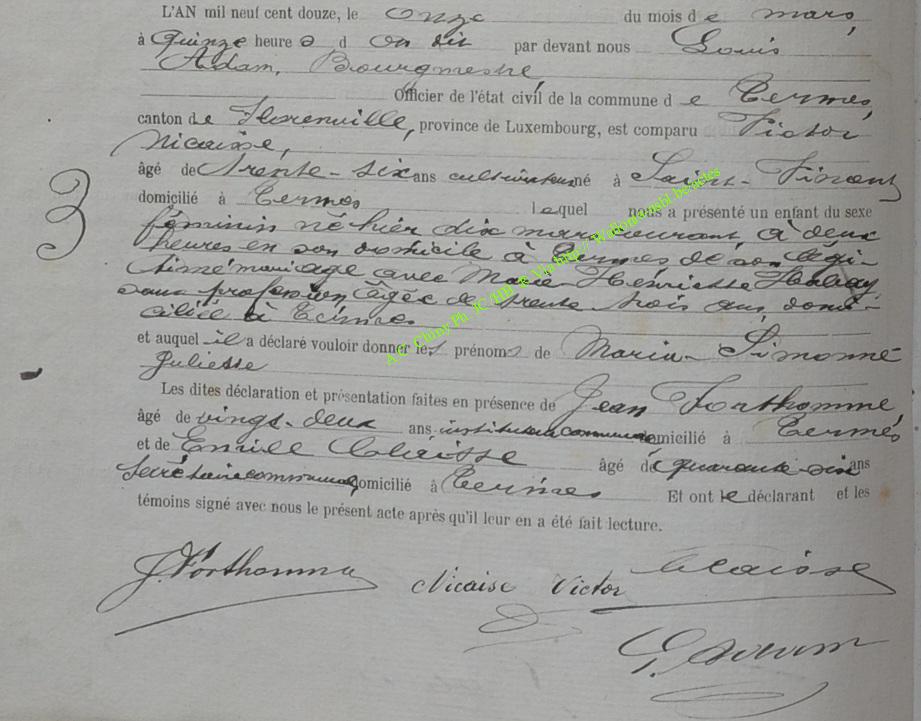 L'AN mil neuf cent douze, le onze du mois de mars,
à quinze heures d on dix par devant nous Louis
Adam, Bourgmestre,
Officier de l'état civil de la commune de Termes,
canton de Florenville, province de Luxembourg, est comparu Victor
Nicaisse,
âgé de trente-six ans cultivateur né à Saint-Vincent
domicilié à Termes lequel nous a présenté un enfant du sexe
féminin né hier dix mars courant, à deux
heures en son domicile à Termes de son légi-
time mariage avec Marie Henriette
sans profession, âgée de trente trois ans, domi-
ciliée à Termes
et auquel il a déclaré vouloir donner les prénoms de Maria-Simonne
Juliette
Les dites déclaration et présentation faites en présence de Jean Forthomme,
âgé de vingt-deux ans instituteur communal domicilié à Termes
et de Emile Claisse âgé de quarante-six ans
Secrétaire communal domicilié à Termes Et ont le déclarant et les
témoins signé avec nous le présent acte après qu'il leur en a été fait lecture.
3
J. Forthomme Nicaise Victor Claisse
L. Adam